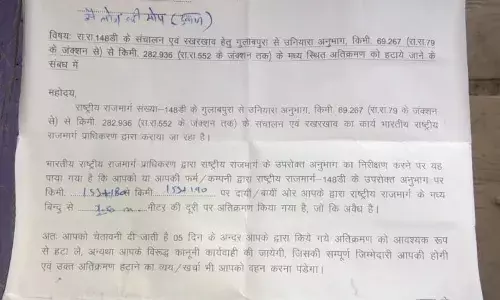 विषयः रा.रा.148डी के संचालन एवं रखरखाव हेतु गुलाबपुरा से उनियारा अनुभाग, किमी. 69.267 (रा.रा.79
के जंक्शन से) से किमी. 282.936 (रा.रा.552 के जंक्शन तक) के मध्य स्थित अतिक्रमण को हटाये जाने के
संबंध में
महोदय,
राष्ट्रीय राजमार्ग संख्या–148डी के गुलाबपुरा से उनियारा अनुभाग, किमी. 69.267 (रा.रा.79 के जंक्शन
से) से किमी. 282.936 (रा.रा.552 के जंक्शन तक) के संचालन एवं रखरखाव का कार्य भारतीय राष्ट्रीय
राजमार्ग प्राधिकरण द्वारा कराया जा रहा है।
भारतीय राष्ट्रीय राजमार्ग प्राधिकरण द्वारा राष्ट्रीय राजमार्ग के उपरोक्त अनुभाग का निरीक्षण करने पर यह
पाया गया है कि आपको या आपकी फर्म/कम्पनी द्वारा राष्ट्रीय राजमार्ग–148डी के उपरोक्त अनुभाग पर
किमी. किमी 153+190 पर दायीं/बायीं ओर आपके द्वारा राष्ट्रीय राजमार्ग के मध्य
बिन्दु से मीटर की दूरी पर अतिक्रमण किया गया है, जों कि अवैध है।
अतः आपको चेतावनी दी जाती है 05 दिन के अन्दर आपके द्वारा किये गये अतिक्रमण को आवश्यक रूप
से हटा ले, अन्यथा आपके विरूद्ध कानूनी कार्यवाही की जायेगी, जिसकी सम्पूर्ण जिम्मेदारी आपकी होगी
एवं उक्त अतिक्रमण हटाने का व्यय/खर्चा भी आपको वहन करना पडेगा।